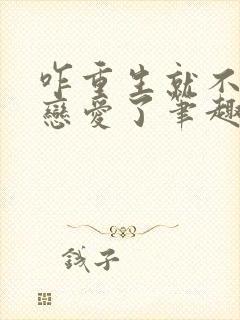 咋重生就不
戀愛了筆趣
錢子